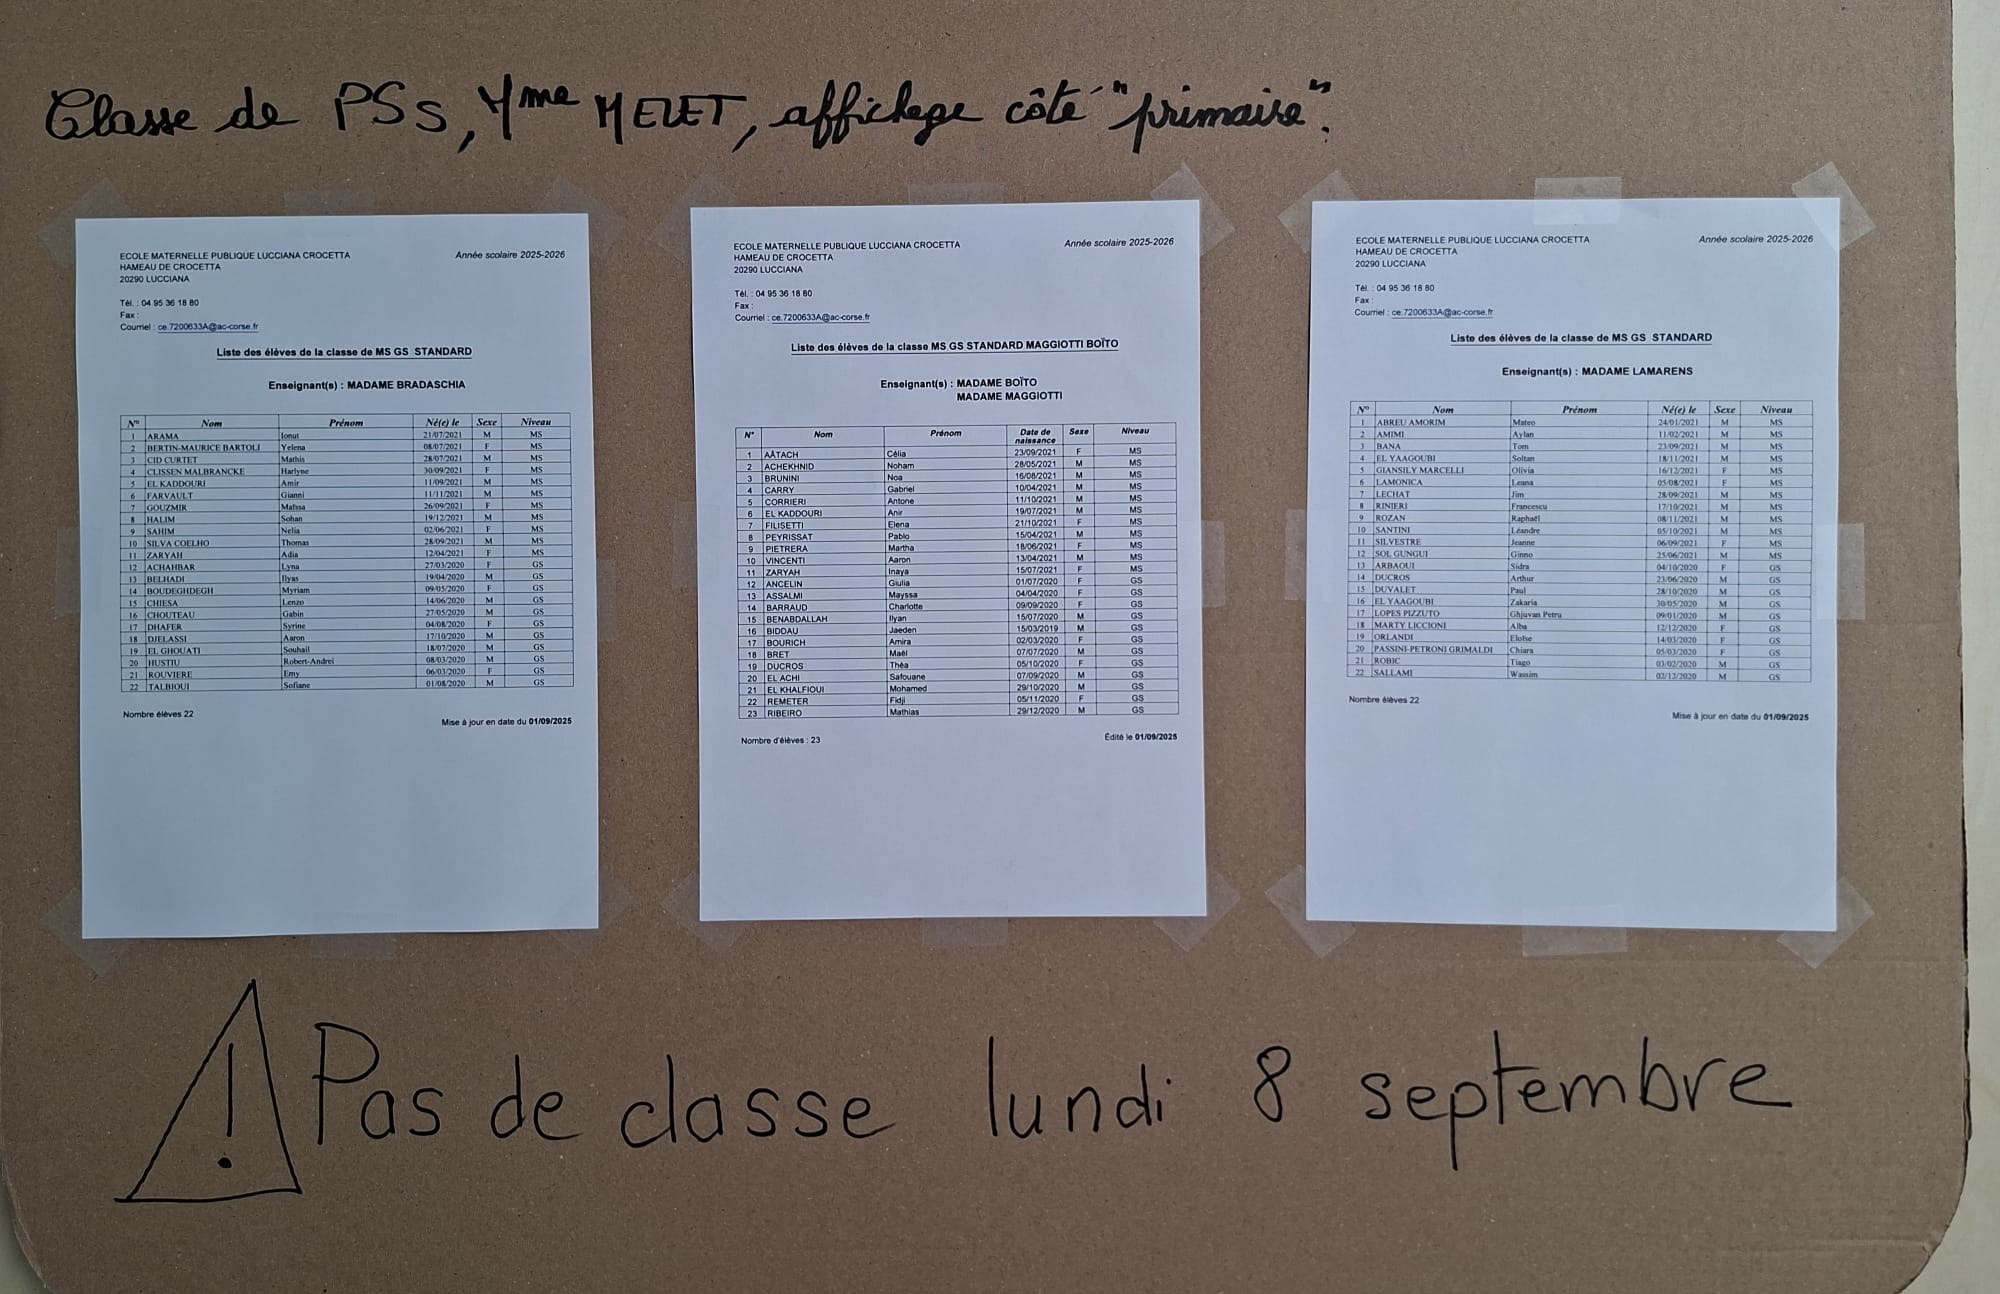 Classe de PSs, Mme MELET, affichage côté "primaire".
ECOLE MATERNELLE PUBLIQUE LUCCIANA CROCETTA Année scolaire 2025-2026
HAMEAU DE CROCETTA
20290 LUCCIANA
Tél. : 04 95 36 18 80
Fax :
Courriel : ce.7200633A@ac-corse.fr
Liste des élèves de la classe de MS GS STANDARD
Enseignant(s) : MADAME BRADASCHIA
N° Nom Prénom Né(e) le Sexe Niveau
1 ARAMA Ionut 21/07/2021 M MS
2 BERTIN-MAURICE BARTOLI Yelena 08/07/2021 F MS
3 CID CURTET Mathis 28/07/2021 M MS
4 CLISSEN MALBRANCKE Harlyne 30/09/2021 F MS
5 EL KADDOURI Amir 11/09/2021 M MS
6 FARVAULT Gianni 11/11/2021 M MS
7 GOUZMIR Maïssa 26/09/2021 F MS
8 HALIM Sohan 19/12/2021 M MS
9 SAHIM Nelia 02/06/2021 F MS
10 SILVA COELHO Thomas 28/09/2021 M MS
11 ZARYAH Adia 12/04/2021 F MS
12 ACHAHBAR Lyna 27/03/2020 F GS
13 BELHADI Ilyas 19/04/2020 M GS
14 BOUDEGHDEGH Myriam 09/05/2020 F GS
15 CHIESA Lenzo 14/06/2020 M GS
16 CHOUTEAU Gabin 27/05/2020 M GS
17 DHAFER Syrine 04/08/2020 F GS
18 DJELASSI Aaron 17/10/2020 M GS
19 EL GHOUATI Souhail 18/07/2020 M GS
20 HUSTIU Robert-Andrei 08/03/2020 M GS
21 ROUVIERE Emy 06/03/2020 F GS
22 TALBIOUI Sofiane 01/08/2020 M GS
Nombre élèves 22
Mise à jour en date du 01/09/2025
ECOLE MATERNELLE PUBLIQUE LUCCIANA CROCETTA Année scolaire 2025-2026
HAMEAU DE CROCETTA
20290 LUCCIANA
Tél. : 04 95 36 18 80
Fax :
Courriel : ce.7200633A@ac-corse.fr
Liste des élèves de la classe MS GS STANDARD MAGGIOTTI BOÏTO
Enseignant(s) : MADAME BOÏTO
MADAME MAGGIOTTI
N° Nom Prénom Date de naissance Sexe Niveau
1 AÄTACH Célia 23/09/2021 F MS
2 ACHEKHNID Noham 28/05/2021 M MS
3 BRUNINI Noa 16/08/2021 M MS
4 CARRY Gabriel 10/04/2021 M MS
5 CORRIERI Antone 11/10/2021 M MS
6 EL KADDOURI Anir 19/07/2021 M MS
7 FILISETTI Elena 21/10/2021 F MS
8 PEYRISSAT Pablo 15/04/2021 M MS
9 PIETRERA Martha 18/06/2021 F MS
10 VINCENTI Aaron 13/04/2021 M MS
11 ZARYAH Inaya 15/07/2021 F MS
12 ANCELIN Giulia 01/07/2020 F GS
13 ASSALMI Mayssa 04/04/2020 F GS
14 BARRAUD Charlotte 09/09/2020 F GS
15 BENABDALLAH Ilyan 15/07/2020 M GS
16 BIDDAU Jaeden 15/03/2019 M GS
17 BOURICH Amira 02/03/2020 F GS
18 BRET Maël 07/07/2020 M GS
19 DUCROS Théa 05/10/2020 F GS
20 EL ACHI Safouane 07/09/2020 M GS
21 EL KHALFIOUI Mohamed 29/10/2020 M GS
22 REMETER Fidji 05/11/2020 F GS
23 RIBEIRO Mathias 29/12/2020 M GS
Nombre d'élèves : 23
Édité le 01/09/2025
ECOLE MATERNELLE PUBLIQUE LUCCIANA CROCETTA Année scolaire 2025-2026
HAMEAU DE CROCETTA
20290 LUCCIANA
Tél. : 04 95 36 18 80
Fax :
Courriel : ce.7200633A@ac-corse.fr
Liste des élèves de la classe de MS GS STANDARD
Enseignant(s) : MADAME LAMARENS
N° Nom Prénom Né(e) le Sexe Niveau
1 ABREU AMORIM Mateo 24/01/2021 M MS
2 AMIMI Aylan 11/02/2021 M MS
3 BANA Tom 23/09/2021 M MS
4 EL YAAGOUBI Soltan 18/11/2021 M MS
5 GIANSILY MARCELLI Olivia 16/12/2021 F MS
6 LAMONICA Leana 05/08/2021 F MS
7 LECHAT Jim 28/09/2021 M MS
8 RINIERI Francescu 17/10/2021 M MS
9 ROZAN Raphaël 08/11/2021 M MS
10 SANTINI Léandre 05/10/2021 M MS
11 SILVESTRE Jeanne 06/09/2021 F MS
12 SOL GUNGUI Ginno 25/06/2021 M MS
13 ARBAOUI Sidra 04/10/2020 F GS
14 DUCROS Arthur 23/06/2020 M GS
15 DUVALET Paul 28/10/2020 M GS
16 EL YAAGOUBI Zakaria 30/05/2020 M GS
17 LOPES PIZZUTO Ghjuvan Petru 09/01/2020 M GS
18 MARTY LICCIONI Alba 12/12/2020 F GS
19 ORLANDI Eloïse 14/03/2020 F GS
20 PASSINI-PETRONI GRIMALDI Chiara 05/03/2020 F GS
21 ROBIC Tiago 03/02/2020 M GS
22 SALLAMI Wassim 02/12/2020 M GS
Nombre élèves 22
Mise à jour en date du 01/09/2025
! Pas de classe lundi 8 septembre